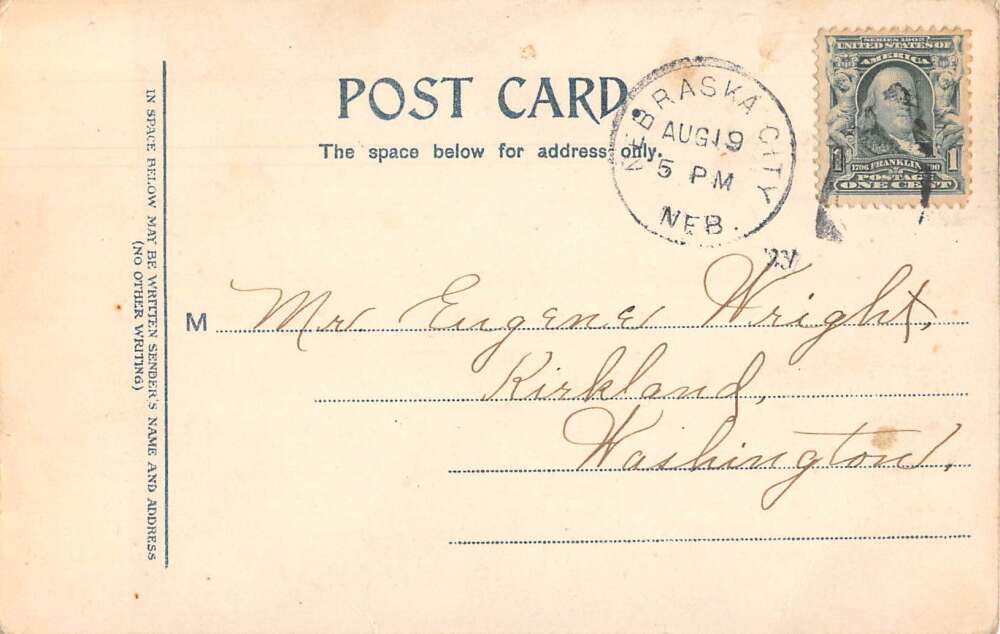 POST CARD.
The space below for address only.
NEBRASKA CITY
AUG 19
5 PM
NEB.
SERIES 1902
UNITED STATES OF
AMERICA
1706 FRANKLIN 1790
1 POSTAGE 1
ONE CENT
M Mr. Eugene Wright,
Kirkland,
Washington.
IN SPACE BELOW MAY BE WRITTEN SENDER'S NAME AND ADDRESS
(NO OTHER WRITING)